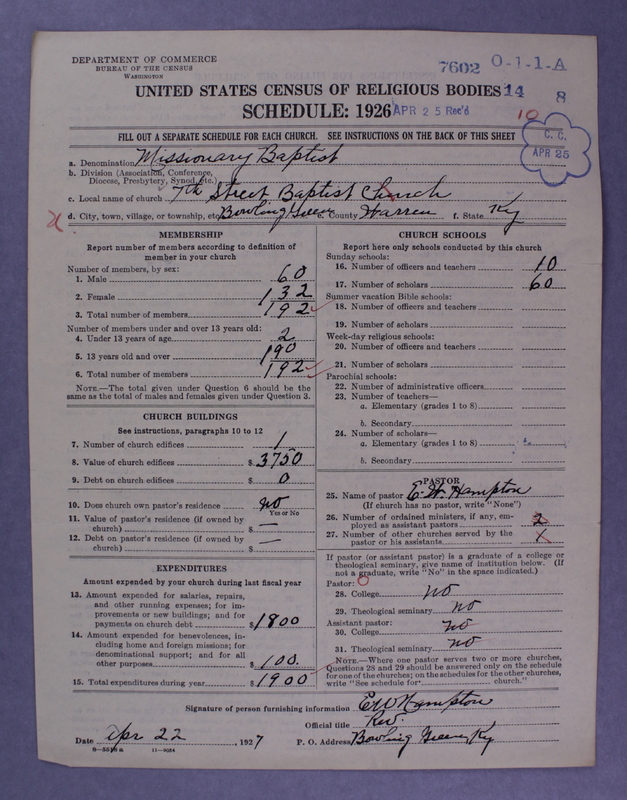 DEPARTMENT OF COMMERCE
BUREAU OF THE CENSUS
WASHINGTON
7602 O-1-1-A
UNITED STATES CENSUS OF RELIGIOUS BODIES 14 8
SCHEDULE: 1926 APR 25 Rec'd 10
FILL OUT A SEPARATE SCHEDULE FOR EACH CHURCH. SEE INSTRUCTIONS ON THE BACK OF THIS SHEET
C. C.
APR 25
a. Denomination Missionary Baptist
b. Division (Association, Conference,
Diocese, Presbytery, Synod, etc.)
c. Local name of church 7th Street Baptist Church
d. City, town, village, or township, etc. Bowling Green e. County Warren f. State Ky
MEMBERSHIP
Report number of members according to definition of
member in your church
Number of members, by sex:
1. Male 60
2. Female 132
3. Total number of members 192
Number of members under and over 13 years old:
4. Under 13 years of age 2
5. 13 years old and over 190
6. Total number of members 192
NOTE.—The total given under Question 6 should be the
same as the total of males and females given under Question 3.
CHURCH BUILDINGS
See instructions, paragraphs 10 to 12
7. Number of church edifices 1
8. Value of church edifices $ 3750
9. Debt on church edifices $ 0
10. Does church own pastor's residence no
Yes or No
11. Value of pastor's residence (if owned by
church) $ —
12. Debt on pastor's residence (if owned by
church) $ —
EXPENDITURES
Amount expended by your church during last fiscal year
13. Amount expended for salaries, repairs,
and other running expenses; for im-
provements or new buildings; and for
payments on church debt $ 1800
14. Amount expended for benevolences, in-
cluding home and foreign missions; for
denominational support; and for all
other purposes $ 100.
15. Total expenditures during year $ 1900
CHURCH SCHOOLS
Report here only schools conducted by this church
Sunday schools:
16. Number of officers and teachers 10
17. Number of scholars 60
Summer vacation Bible schools:
18. Number of officers and teachers
19. Number of scholars
Week-day religious schools:
20. Number of officers and teachers
21. Number of scholars
Parochial schools:
22. Number of administrative officers
23. Number of teachers—
a. Elementary (grades 1 to 8)
b. Secondary
24. Number of scholars—
a. Elementary (grades 1 to 8)
b. Secondary
PASTOR
25. Name of pastor E. W. Hampton
(If church has no pastor, write "None")
26. Number of ordained ministers, if any, em-
ployed as assistant pastors 2
27. Number of other churches served by the
pastor or his assistants X
If pastor (or assistant pastor) is a graduate of a college or
theological seminary, give name of institution below. (If
not a graduate, write "No" in the space indicated.)
Pastor: 0
28. College no
29. Theological seminary no
Assistant pastor:
30. College no
31. Theological seminary no
NOTE.—Where one pastor serves two or more churches,
Questions 28 and 29 should be answered only on the schedule
for one of the churches; on the schedules for the other churches,
write "See schedule for church."
Signature of person furnishing information E W Hampton
Official title Rev.
Date Apr 22, 1927 P. O. Address Bowling Green, Ky